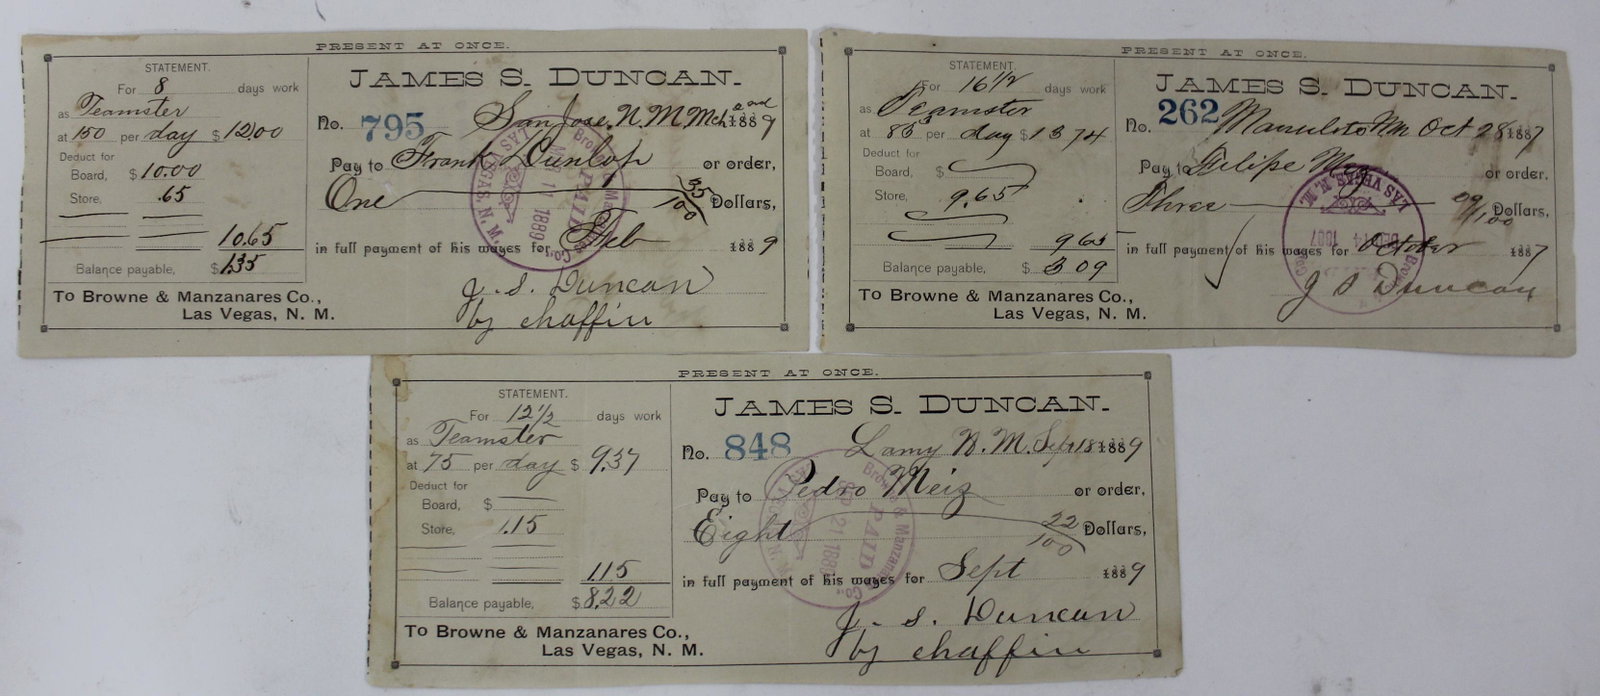 PRESENT AT ONCE.
STATEMENT.
For 8 days work
as Teamster
at 150 per day $ 12.00
Deduct for
Board, $ 10.00
Store, .65
10.65
Balance payable, $ 1.35
To Browne & Manzanares Co.,
Las Vegas, N. M.
JAMES S. DUNCAN.
No. 795 San Jose, N. M. Mch 1889
Pay to Frank Dunlop or order,
One 35/100 Dollars,
in full payment of his wages for Feb 1889
J. S. Duncan
by Chaffin
LAS VEGAS, N. M.
11 1889
PAID
Browne & Manzanares Co.,
PRESENT AT ONCE.
STATEMENT.
For 16 1/2 days work
as Teamster
at 83 per day $ 13 74
Deduct for
Board, $
Store, 9.65
9 65
Balance payable, $ 3 09
To Browne & Manzanares Co.,
Las Vegas, N. M.
JAMES S. DUNCAN.
No. 262 NM Oct 28 1887
Pay to Felipe or order,
Three 09/100 Dollars,
in full payment of his wages for October 1887
J S Duncan
LAS VEGAS N. M.
14 1887
PRESENT AT ONCE.
STATEMENT.
For 12 1/2 days work
as Teamster
at 75 per day $ 9.37
Deduct for
Board, $
Store, 1.15
1.15
Balance payable, $ 8.22
To Browne & Manzanares Co.,
Las Vegas, N. M.
JAMES S. DUNCAN.
No. 848 Lamy N. M. Sept 18 1889
Pay to Pedro Meiz or order,
Eight 22/100 Dollars,
in full payment of his wages for Sept 1889
J. S. Duncan
by Chaffin
SEP 21 188
PAID
Browne & Manzanares Co.,